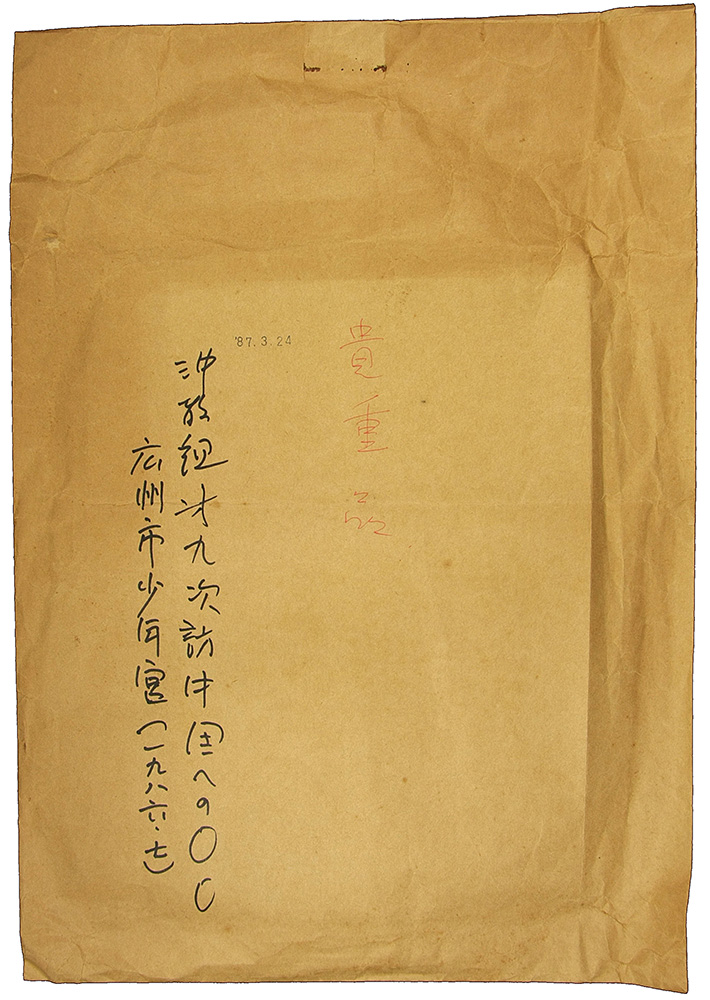 貴重品
'87.3.24
沖教組才九次訪中団への
広州市少年宮(一九八六・七)